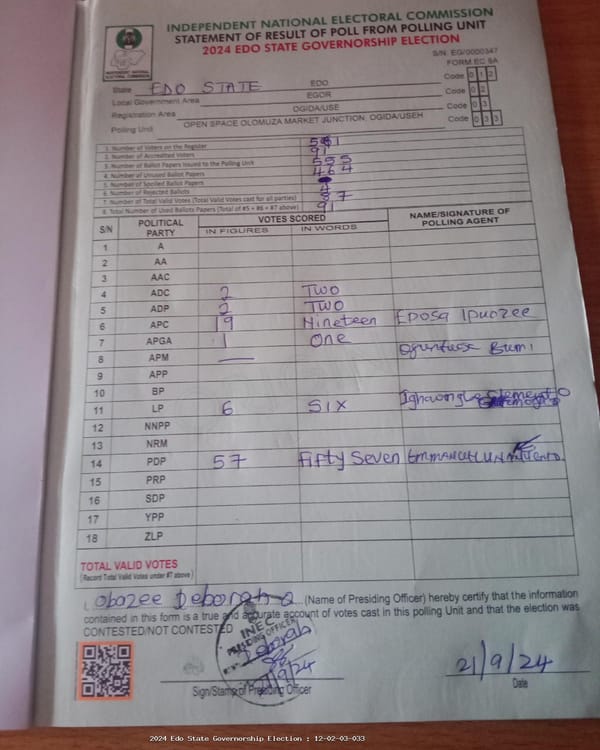 INDEPENDENT NATIONAL ELECTORAL COMMISSION
STATEMENT OF RESULT OF POLL FROM POLLING UNIT
2024 EDO STATE GOVERNORSHIP ELECTION
S/N. EG/0000347
FORM EC 8A
INDEPENDENT NATIONAL ELECTORAL COMMISSION
State EDO STATE EDO Code 0 1 2
Local Government Area EGOR Code 0 2
Registration Area OGIDA/USE Code 0 3
Polling Unit OPEN SPACE OLOMUZA MARKET JUNCTION, OGIDA/USEH Code 0 3 3
1. Number of Voters on the Register
2. Number of Accredited Voters 91
3. Number of Ballot Papers Issued to the Polling Unit 555
4. Number of Unused Ballot Papers 464
5. Number of Spoiled Ballot Papers
6. Number of Rejected Ballots 4
7. Number of Total Valid Votes (Total Valid Votes cast for all parties) 87
8. Total Number of Used Ballots Papers (Total of #5 + #6 + #7 above) 91
S/N POLITICAL PARTY VOTES SCORED NAME/SIGNATURE OF POLLING AGENT
IN FIGURES IN WORDS
1 A
2 AA
3 AAC
4 ADC 2 TWO
5 ADP 2 TWO
6 APC 19 Nineteen Eposa Ipuozee
7 APGA 1 One
8 APM — Bumi
9 APP
10 BP
11 LP 6 SIX
12 NNPP
13 NRM
14 PDP 57 Fifty Seven EMMANUEL
15 PRP
16 SDP
17 YPP
18 ZLP
TOTAL VALID VOTES
(Record Total Valid Votes under #7 above)
I, Obazee Deborah O (Name of Presiding Officer) hereby certify that the information
contained in this form is a true and accurate account of votes cast in this polling Unit and that the election was
CONTESTED/NOT CONTESTED
INEC
PRESIDING OFFICER
Deborah
21/9/24
Sign/Stamp of Presiding Officer
21/9/24
Date
2024 Edo State Governorship Election : 12-02-03-033